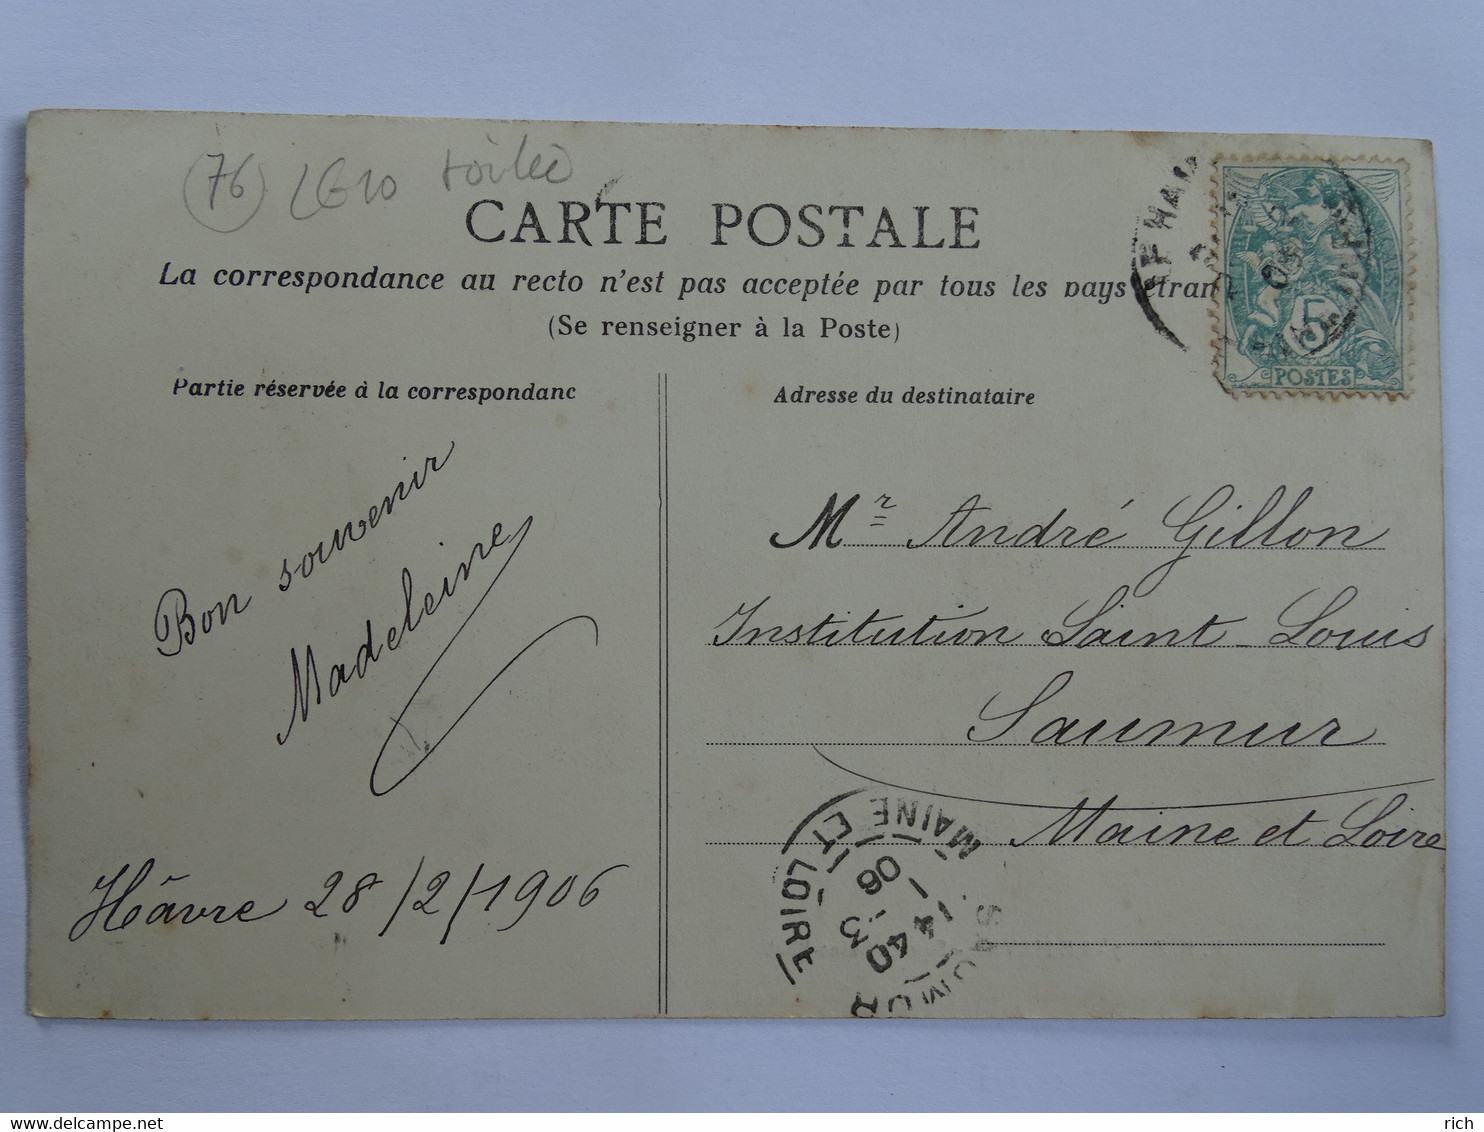 76 LG10 toilée
CARTE POSTALE
La correspondance au recto n'est pas acceptée par tous les pays étran
(Se renseigner à la Poste)
Partie réservée à la correspondanc
Bon souvenir
Madeleine
Hâvre 28/2/1906
Adresse du destinataire
Mr André Gillon
Institution Saint-Louis
Saumur
Maine et Loire
5
POSTES
SAUMUR
1440
1 - 3
06
MAINE ET LOIRE
delcampe.net
rich